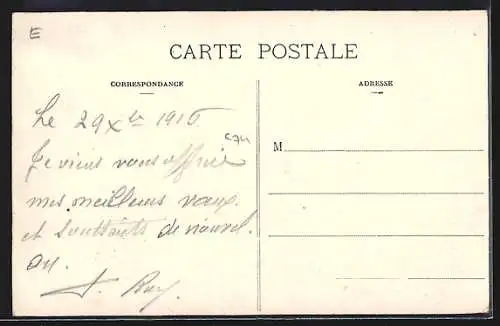 E
CARTE POSTALE
CORRESPONDANCE
ADRESSE
Le 29 Xbre 1916
Je viens vous offrir
mes meilleurs vœux
et souhaits de nouvel
an.
M